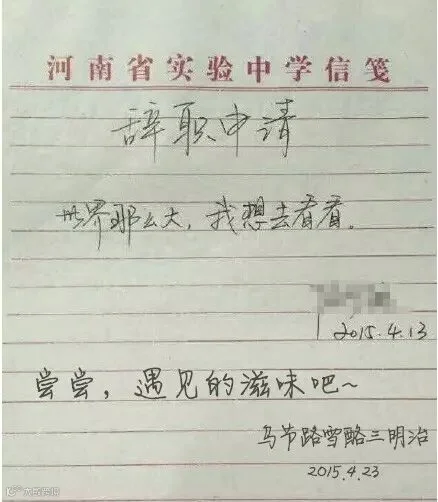 河南省实验中学信笺
辞职申请
世界那么大，我想去看看。
2015.4.13
尝尝，遇见的滋味吧~
乌节路雪酪三明治
2015.4.23